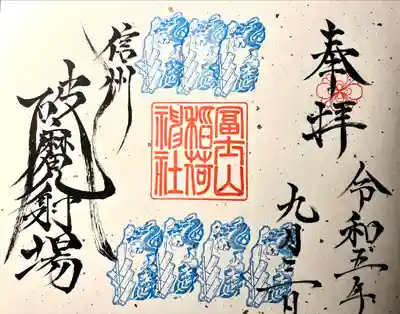 奉拝
令和五年
九月三日
冨士山
稲荷
神社
信州
破魔射場